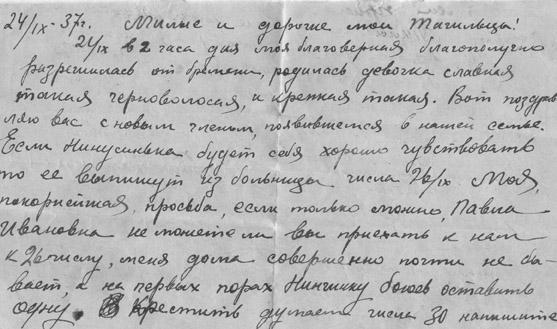 24/IX - 37г. Милые и дорогие мои Тагильцы!
24/IX в 2 часа дня моя благоверная благополучно
разрешилась от бремени, родилась девочка славная
такая черноволосая, и крепкая такая. Вот поздрав-
ляю вас с новым членом, появившемся в нашей семье.
Если Нинусинька будет себя хорошо чувствовать
то ее выпишут из больницы числа 26/IX. Моя,
покорнейшая, просьба, если только можно, Павла
Ивановна не можете ли вы приехать к нам
к 26 числу, меня дома совершенно почти не бы-
вает, а на первых порах Ниночку боюсь оставить
одну. Крестить думаем числа 30 напишите